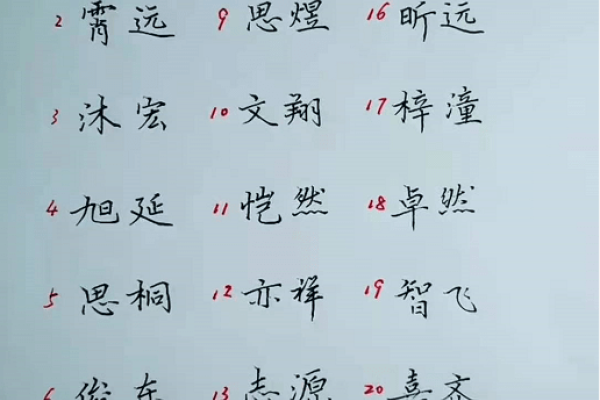 2 霄远 9 思煜 16 昕远
3 沐宏 10 文翔 17 梓潼
4 旭延 11 恺然 18 卓然
5 思桐 12 亦祥 19 智飞
6 俊东 13 志源 20 喜齐